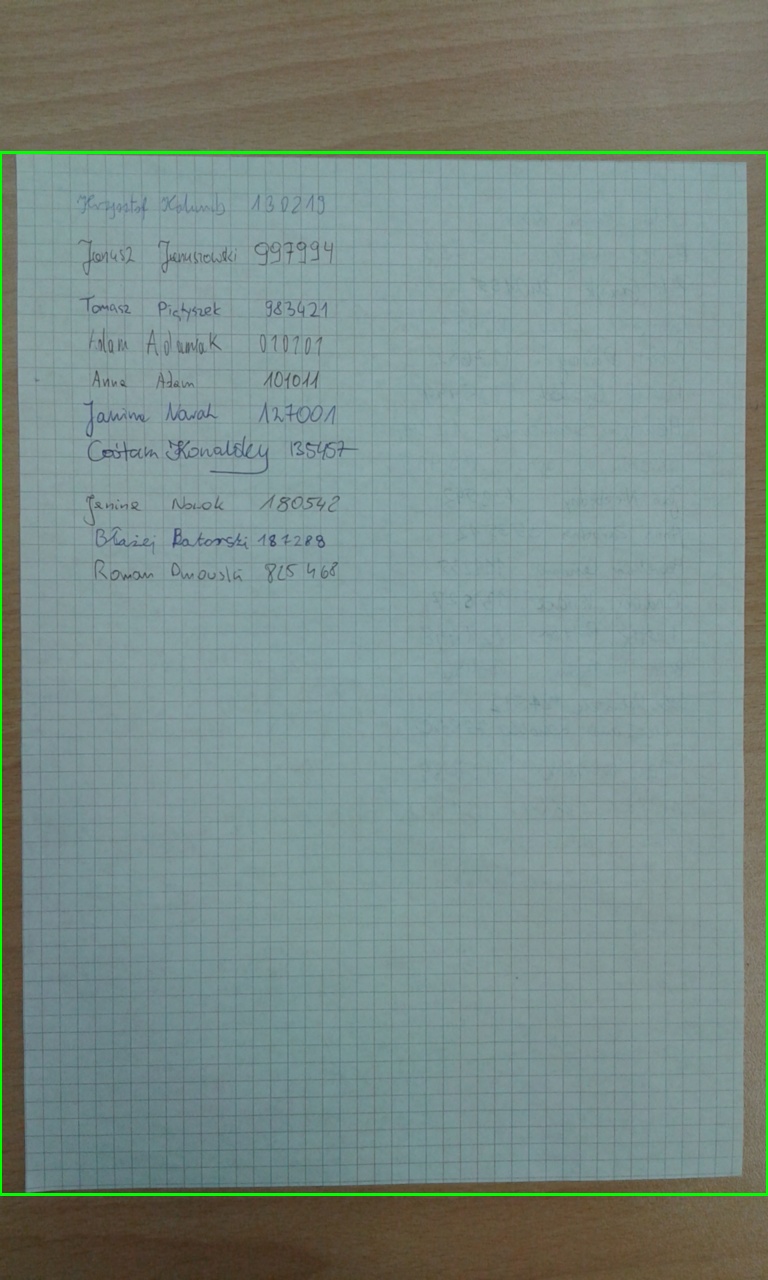 Krzysztof Kolumb 130219
Janusz Januszowski 997994
Tomasz Piątyszek 983421
Adam Adamiak 010101
Anna Adam 101011
Janina Nowak 127001
Cośtam Kowalsky 135457
Janina Nowak 180542
Błażej Batorski 187289
Roman Dmowski 825 468